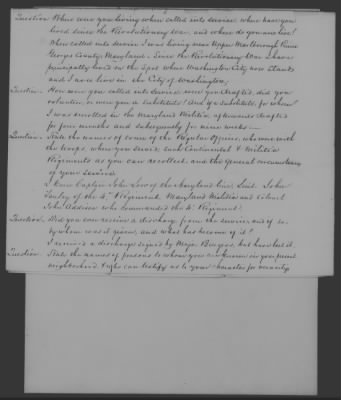 Question Where were you living when called into service where have you
lived since the Revolutionary War, and where do you now live?
When called into service I was living near Upper Marlborough Prince
Georges County, Maryland. Since the Revolutionary War I have
principally lived on the spot where Washington City now stands
and I now live in the City of Washington.
Question. How were you called into service were you drafted, did you
volunteer, or were you a substitute? And if a substitute, for whom?
I was enrolled in the Maryland Militia, afterwards drafted
for four months and subsequently for nine weeks.
Question. State the names of some of the Regular Officers, who were with
the troops, where you served, such Continental & Militia
Regiments as you can recollect and the general circumstances
of your service.
I knew Captain John of the Maryland line, Lieut. John
of the 4th Regiment, Maryland Militia and Colonel
John Addison who commanded the 4th Regiment.
Question. Did you ever receive a discharge from the service and if so,
by whom was it given, and what has become of it?
I received a discharge signed by Major Burgess, but have lost it.
Question. State the names of persons to whom you are known in your present
neighborhood & who can testify as to your character for veracity